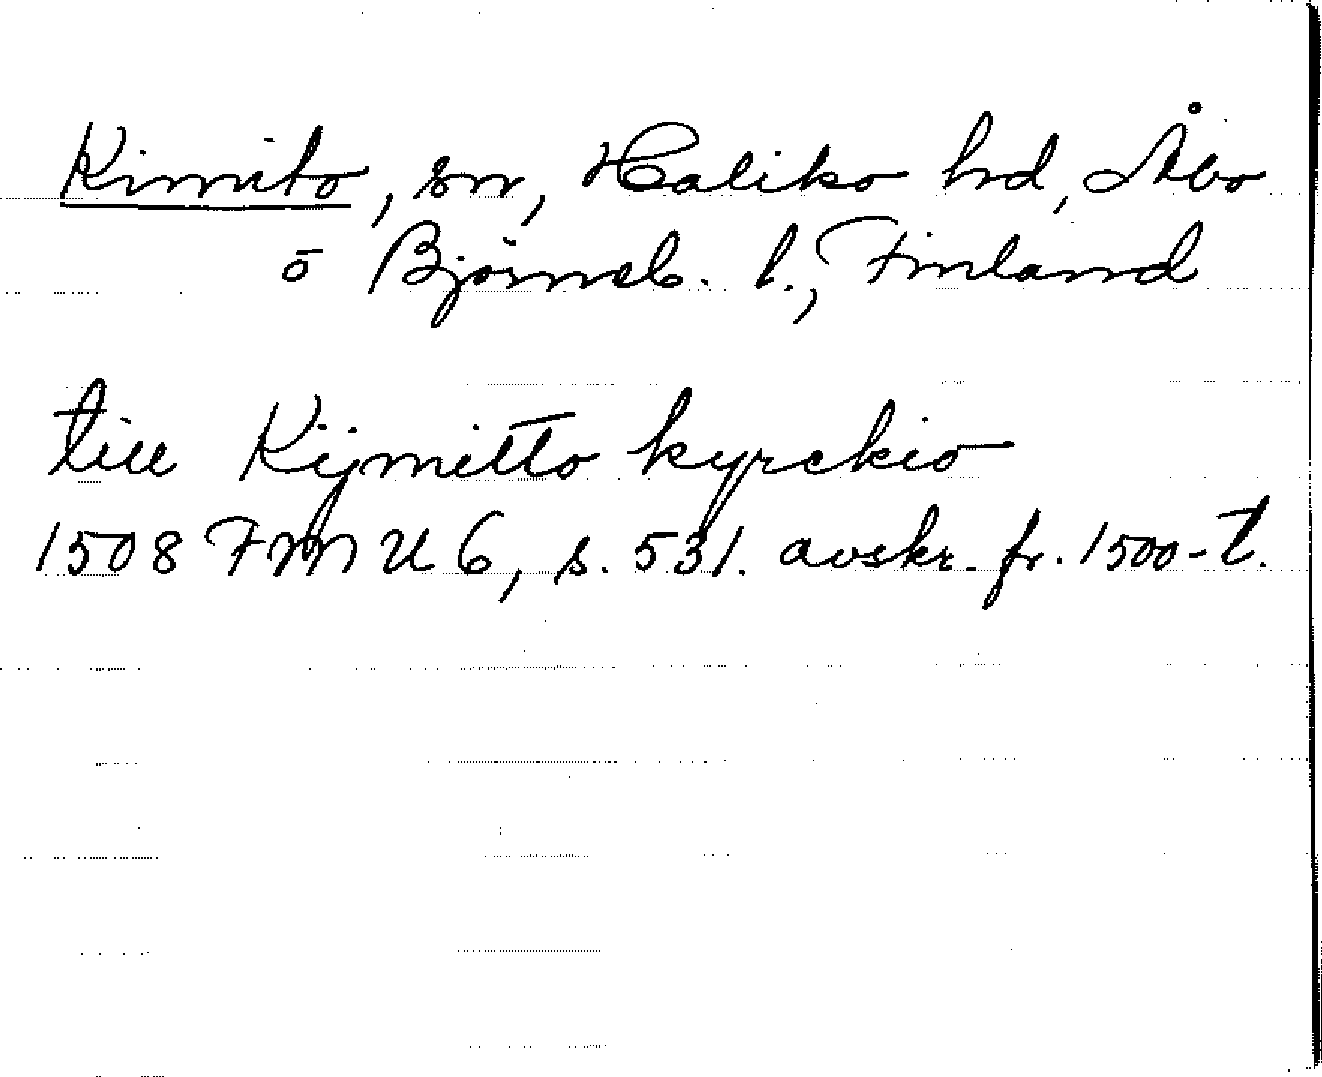 Kimito, sn, Haliko hd, Åbo
o Björneb. l., Finland
till Kijmitto kyrckio
1508 FMU 6, s. 531. avskr. fr. 1500-t.